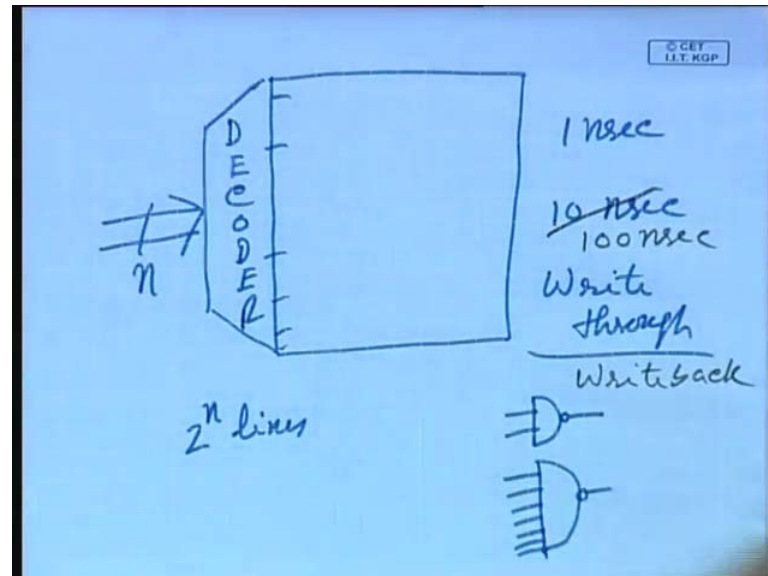 © CET
I.I.T. KGP
DECODER
n
2ⁿ lines
1 nsec
10 nsec
100 nsec
Write
through
Writeback